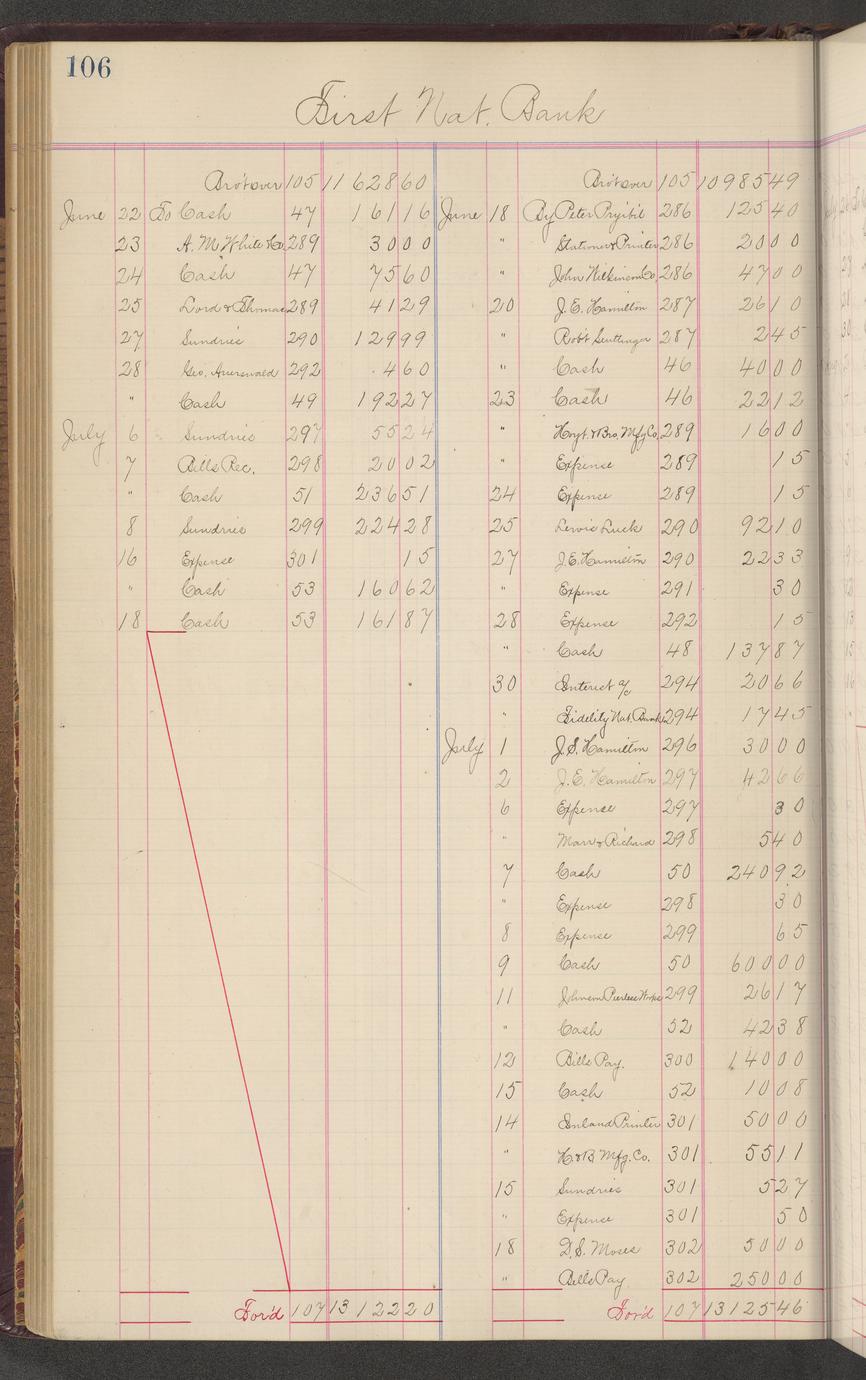 106
First Nat. Bank
Bro't over 105 11 628 60
June 22 To Cash 47 161 16
23 A. M. White & Co. 289 30 00
24 Cash 47 75 60
25 Lord & Thomas 289 41 29
27 Sundries 290 129 99
28 Geo. Auerswald 292 4 60
" Cash 49 192 27
July 6 Sundries 297 55 24
7 Bills Rec. 298 20 02
" Cash 51 236 51
8 Sundries 299 224 28
16 Expense 301 15
" Cash 53 160 62
18 Cash 53 161 87
For'd 107 13 122 20
Bro't over 105 10 985 49
June 18 By Peter Pryibil 286 125 40
" Stationer & Printer 286 20 00
" John Wilkinson Co. 286 47 00
20 J. E. Hamilton 287 26 10
" Rob't 287 2 45
" Cash 46 40 00
23 Cash 46 22 12
" Hoyt & Bro. Mfg Co. 289 16 00
" Expense 289 15
24 Expense 289 15
25 Lewis Luck 290 92 10
27 J. E. Hamilton 290 22 33
" Expense 291 30
28 Expense 292 15
" Cash 48 137 87
30 Interest a/c 294 20 66
" Fidelity Nat. Bank 294 17 45
July 1 J. S. Hamilton 296 30 00
2 J. E. Hamilton 297 42 66
6 Expense 297 30
" Marr & Richard 298 5 40
7 Cash 50 240 92
" Expense 298 30
8 Expense 299 65
9 Cash 50 600 00
11 Johnson Peerless Works 299 26 17
" Cash 52 42 38
12 Bills Pay. 300 140 00
15 Cash 52 10 08
14 Inland Printer 301 50 00
" H. & B. Mfg. Co. 301 55 11
15 Sundries 301 5 27
" Expense 301 50
18 D. S. Moses 302 50 00
" Bills Pay 302 250 00
For'd 107 13 125 46